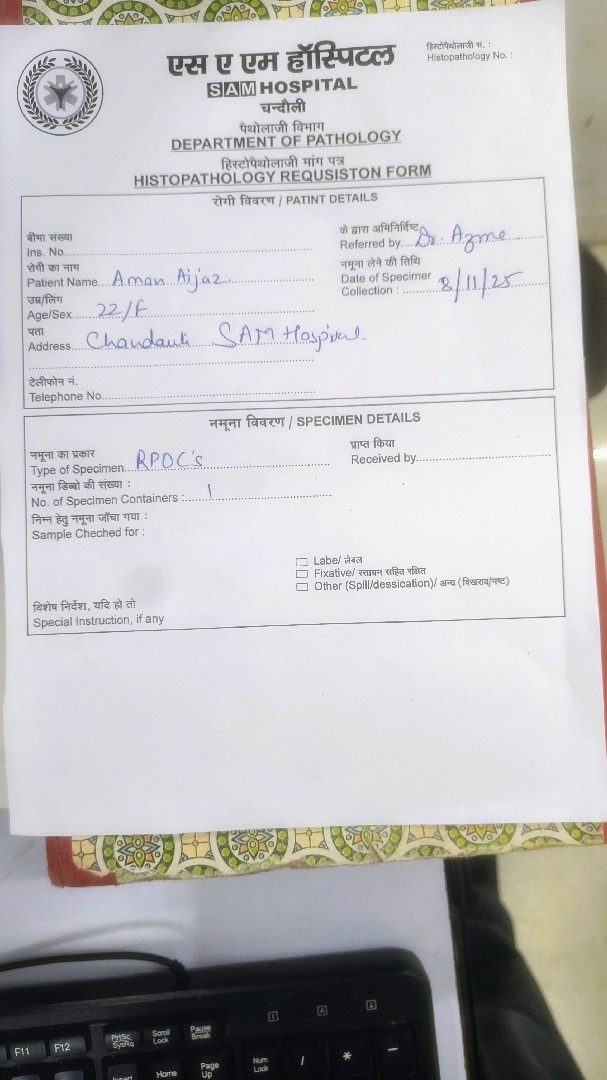 एस ए एम हॉस्पिटल
SAM HOSPITAL
चन्दौली
हिस्टोपैथोलाजी सं. :
Histopathology No. :
पैथोलाजी विभाग
DEPARTMENT OF PATHOLOGY
हिस्टोपैथोलाजी मांग पत्र
HISTOPATHOLOGY REQUSISTON FORM
रोगी विवरण / PATINT DETAILS
बीमा संख्या
Ins. No.
के द्वारा अभिनिर्दिष्ट
Referred by.... Dr. Azme
रोगी का नाम
Patient Name... Aman Aijaz
नमूना लेने की तिथि
Date of Specimer
Collection : 8/11/25
उम्र/लिंग
Age/Sex... 22/F
पता
Address... Chandauli SAM Hospital.
टेलीफोन नं.
Telephone No.
नमूना विवरण / SPECIMEN DETAILS
नमूना का प्रकार
Type of Specimen... RPOC's
प्राप्त किया
Received by
नमूना डिब्बो की संख्या :
No. of Specimen Containers :... 1
निम्न हेतु नमूना जाँचा गया :
Sample Cheched for :
Labe/ लेबल
Fixative/ रसायन सहित रक्षित
Other (Spill/dessication)/ अन्य (बिखराव/नष्ट)
विशेष निर्देश, यदि हो तो
Special Instruction, if any
F11 F12 PrtSc SysRq Scroll Lock Pause Break
1 A
Insert Home Page Up Num Lock / * -